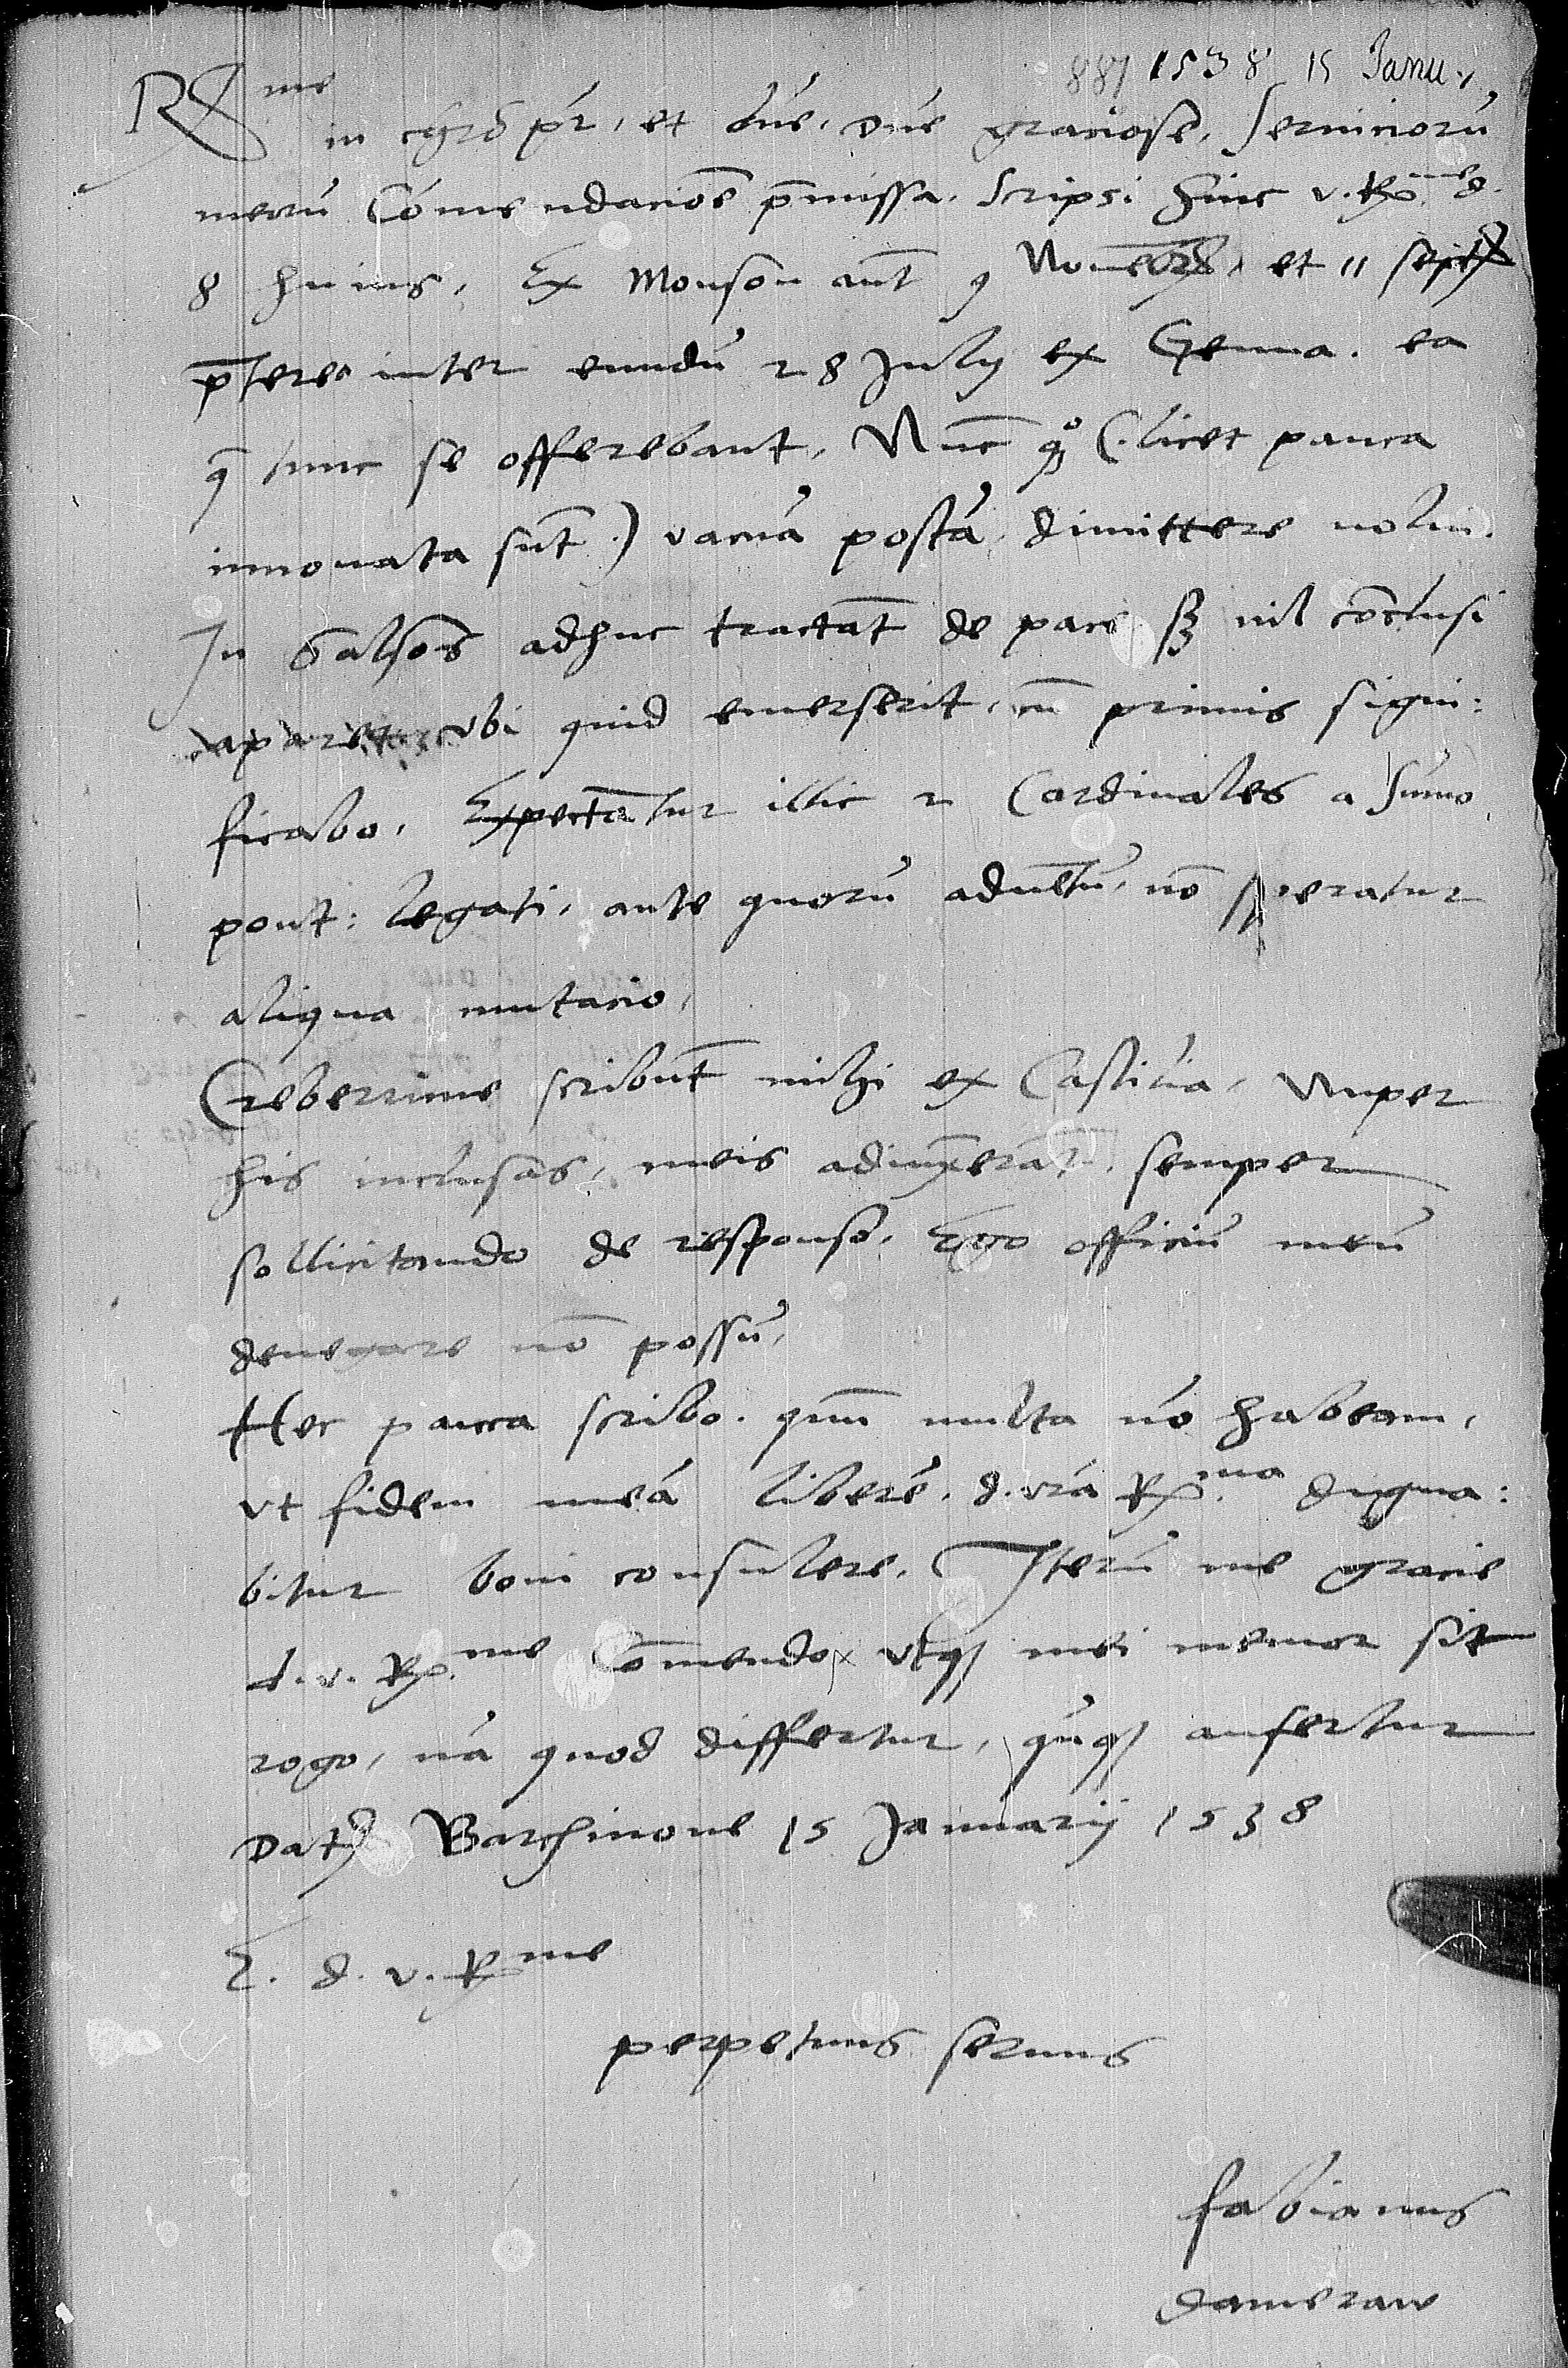 887 1538 15 Janu.
R͞dme
in chro pr̃, et dñe, dñe graciose, Seruicioru̅
meoru̅ Co̅mendacio̅e p̅missa. Scripsi hinc v. Rme d.
8 huius, Ex Monson aut̅ 9 Noue̅bris, et 11 septbris
p̅terea inter eundu̅ 28 July ex Genua. ea
q̅ tunc se offerebant, Nu̅c qoq3 (licet pauca
innouata su̅t) vacua̅ posta̅ dimittere nolui.
In Salsons adhuc tracta̅t de pace s3 nil co̅clusi
aparet vbi quid emerserit, cu̅ primis signi:
ficabo. Expecta̅tur illic 2 Cardinales a su̅mo
pont: legati, ante quoru̅ adue̅tu̅, no̅ speratur
aliqua mutacio,
Creberrime scribu̅t mihi ex Castilia, Nuper
his inclusas, meis adiu̅xera̅t, semper
sollicitando de responso, Ego officiu̅ meu̅
denegare no̅ possu̅,
Hec pauca scribo. qum̅ multa no̅ habeam,
vt fidem mea̅ libere̅. d. vra̅ Rma digna:
bitur boni consulere. Iteru̅ me gracie
d. v. Rme Co̅mendo, vtq3 mei memor sit
rogo, na̅ quod differtur, qu̅q3 aufertur
Dat Barchinone 15 Januarij 1538
E. d. v. Rme
perpetuus seruus
fabianus
damerau